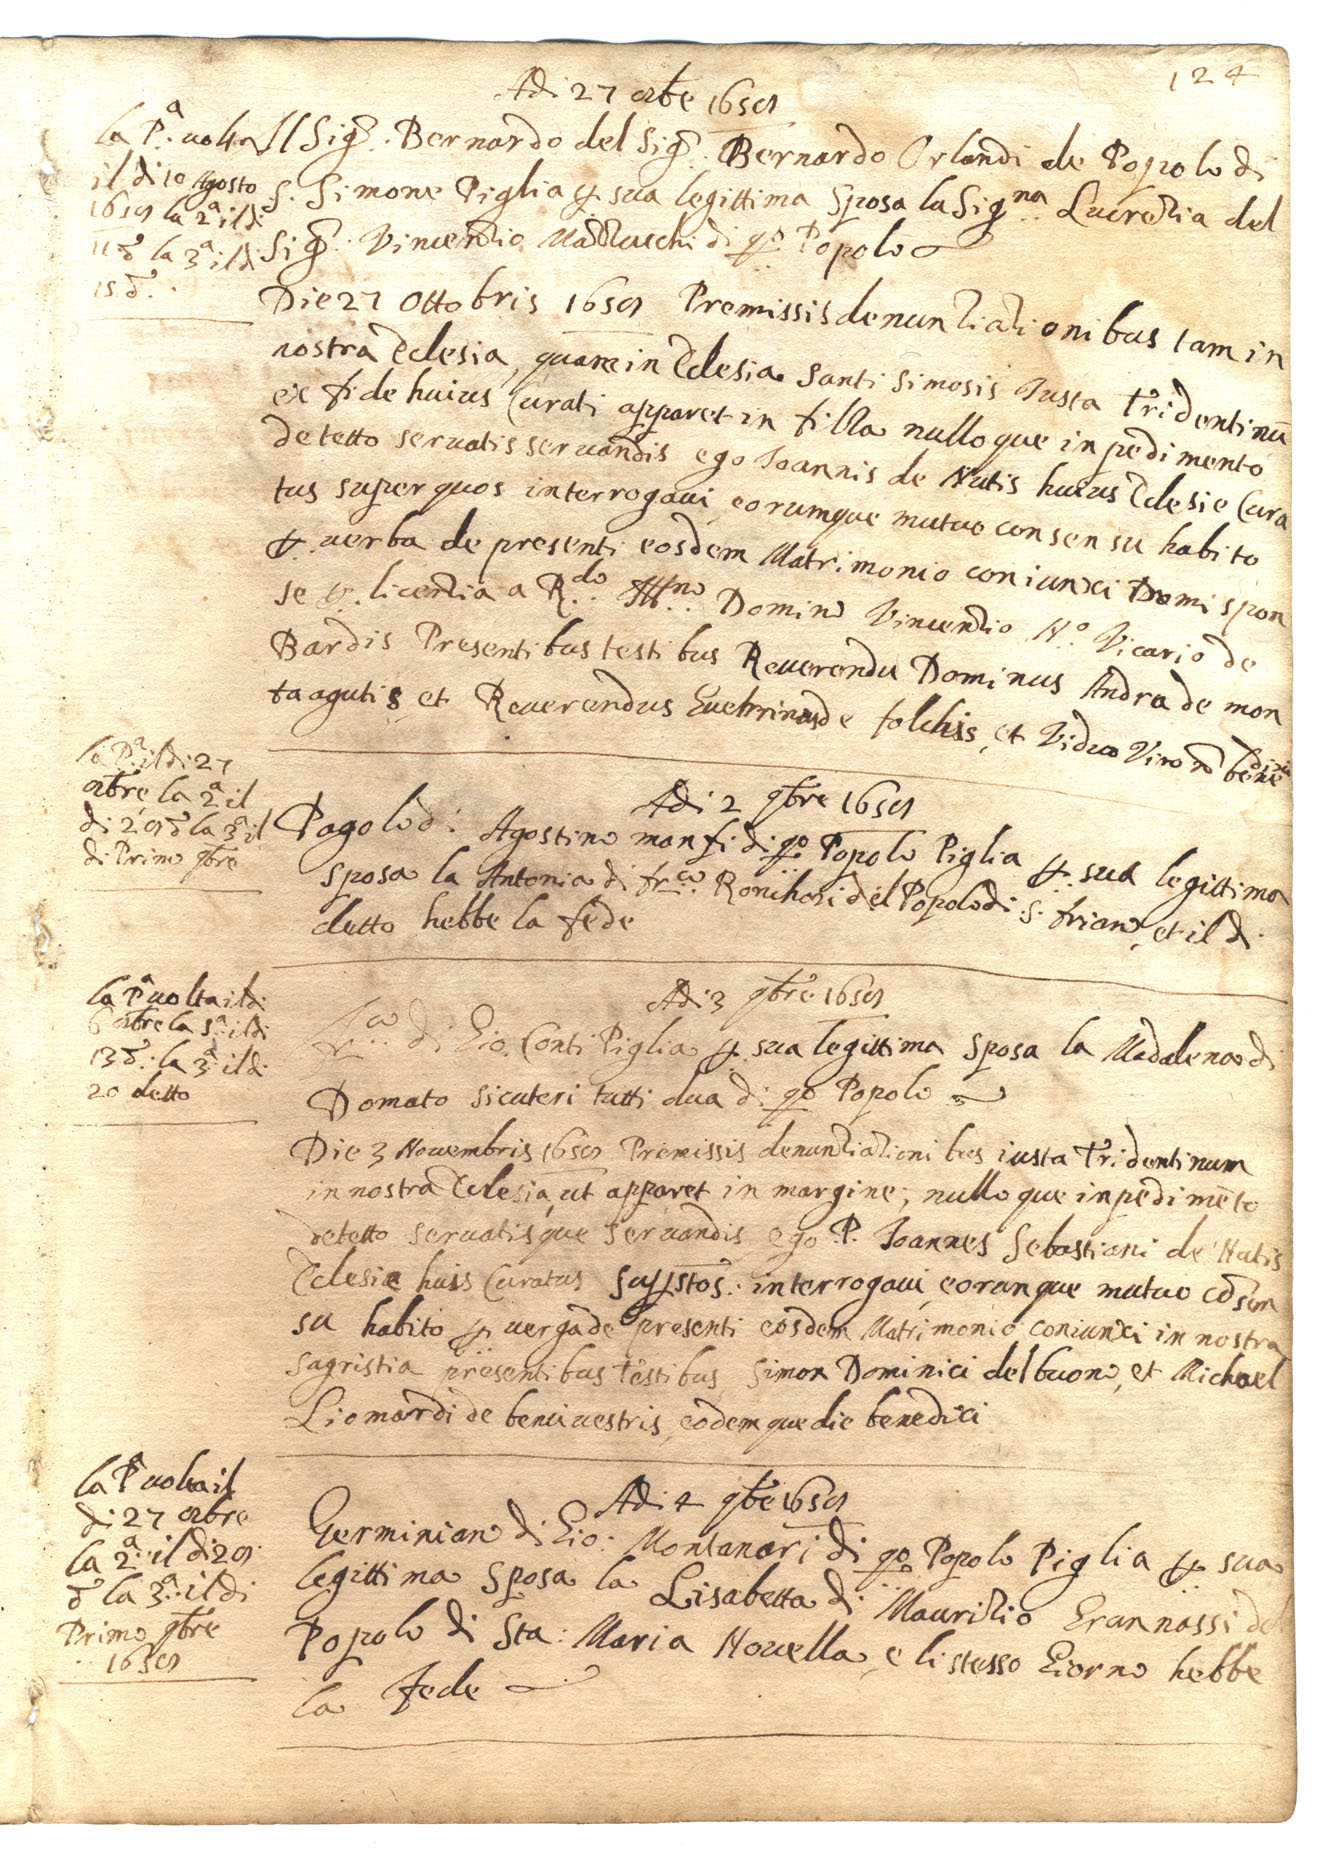 124
Adi 27 8bre 1659
la P.a uolta
il di 10 Agosto
1659 la 2.a il di
11 d.o la 3.a il di
15 d.o
Il Sig.r Bernardo del Sig.r Bernardo Orlandi de Popolo di
S. Simone Piglia p sua legittima Sposa la Sig.na Lucrezia del
Sig.r Vincenzio Mazzuschi di qo Popolo
Die 27 Ottobris 1659 Premissis denunziazionibus tam in
nostra Eclesia, quam in Eclesia Santi Simosis Justa Tridentinū
ex fide huius Curati apparet in filla nulloque inpedimento
detetto servatis servandis ego Joannis de Nutis huius Eclesie Cura
tus super quos interrogaui, eorumque mutuo consensu habito
p uerba de presenti eosdem Matrimonio coniunxi Domi spon
se p licenzia a R.do Ill.mo Domino Vincenzio N.o Vicario de
Bardis Presentibus testibus Reuerendu Dominus Andra de mon
taagutis et Reuerendus de folchis, et
la P.a il di 27
8bre, la 2.a il
di 29 d.o la 3.a il
di Primo 9bre
Adi 2 9bre 1659
Pagolo d. Agostino manfi di qo Popolo Piglia p sua legittima
sposa la Antonia di fr.co Ronihosi del Popolo di S. friano, et il di
dutto hebbe la fede
la P.a uolta il di
6 8bre la 2.a il di
13 d.o la 3.a il di
20 detto
Adi 3 9bre 1659
Fr.co di Gio. Conti Piglia p sua legittima Sposa la Madalena di
Domato sicuteri tutti dua di qo Popolo
Die 3 Nouembris 1659 Premissis denunziazionibus iusta Tridentinum
in nostra Eclesia, ut apparet in margine, nulloque inpedimēto
detetto seruatisque seruandis ego P. Joannes Sebastiani de Nutis
Eclesie huiss Curatus supstos. interrogaui, eorunque mutuo cōsen
su habito p uerga de presenti eosdem Matrimonio coniunxi in nostra
sagristia presentibus testibus Simon Dominici del buono, et Michael
Liomardi de benuiuestris, eodemque die benedixi
la P.a uolta il
di 27 8bre
la 2.a il di 29
d.o la 3.a il di
Primo 9bre
1659
Adi 4 9bre 1659
Germiniano di Gio: Montanari di qo Popolo Piglia p sua
legittima Sposa la Lisabetta di Maurizio Grannassi del
Popolo di Sta: Maria Nouella, e li stesso Giorno hebbe
la fede